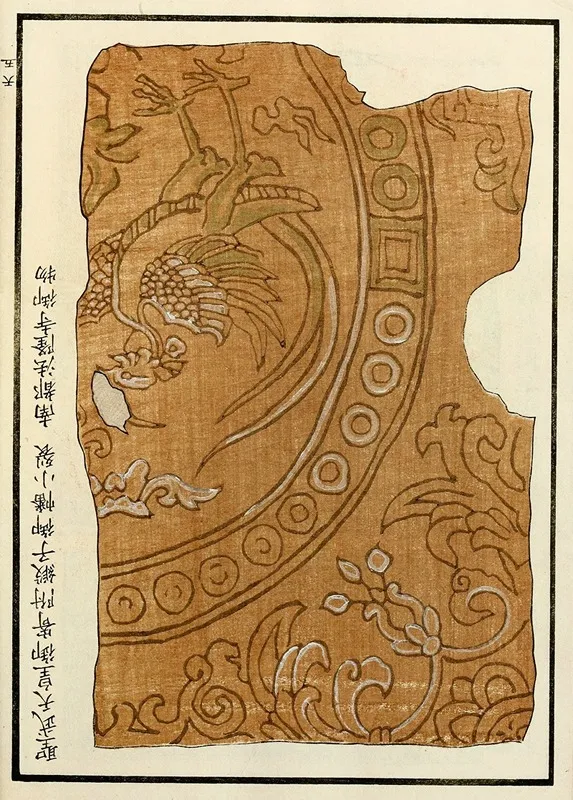 聖武天皇御寄附緞子御幡小裂　南都法隆寺御物
天五